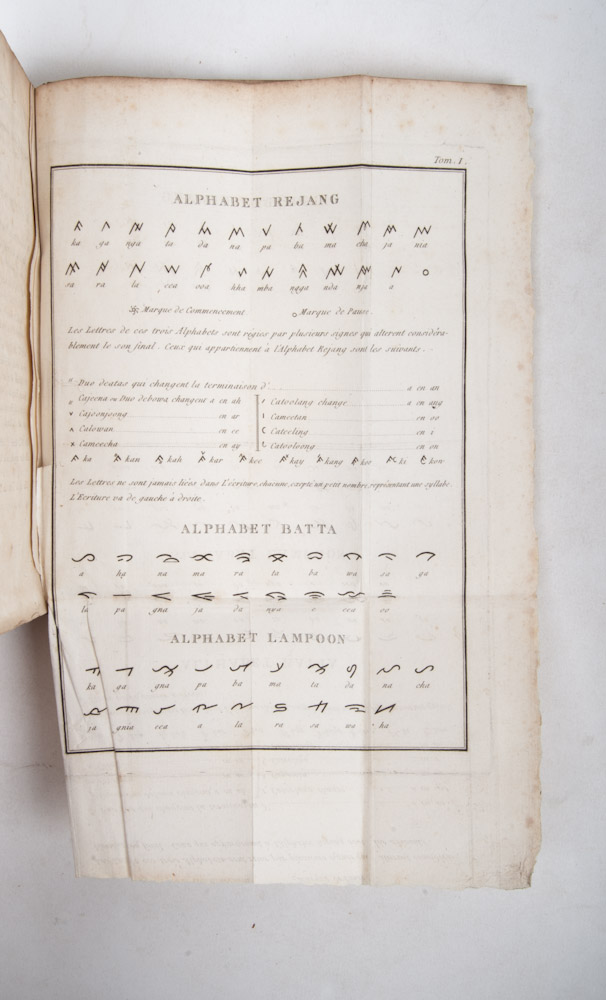 Tom. I.
ALPHABET REJANG
ka ga nga ta da na pa ba ma cha ja nia
sa ra la ooa kha mba ngga nda nja a
Marque de Commencement. Marque de Pause.
Les Lettres de ces trois Alphabets sont régies par plusieurs signes qui altèrent considéra-
blement le son final. Ceux qui appartiennent à l'Alphabet Rejang sont les suivants.
Duo deatas qui changent la terminaison d' a en an
Cajeena ou Duo debowa, changent a en ah Catoolang change a en ang
Cajoonjoong en ar Cameetan en oo
Calowan en ee Cateeling en i
Cameecha en ay Catooloong en ou
ka kan kah kar kee kay kang koo ki kou
Les Lettres ne sont jamais liées dans l'écriture, chacune, excepté un petit nombre, représentant une syllabe.
L'Ecriture va de gauche à droite.
ALPHABET BATTA
a ha na ma ra ta ba wa sa ga
la pa gna ja da e eea oo
ALPHABET LAMPOON
ka ga gna pa ba ma ta da na cha
ja gnia eea a la ra sa wa ha